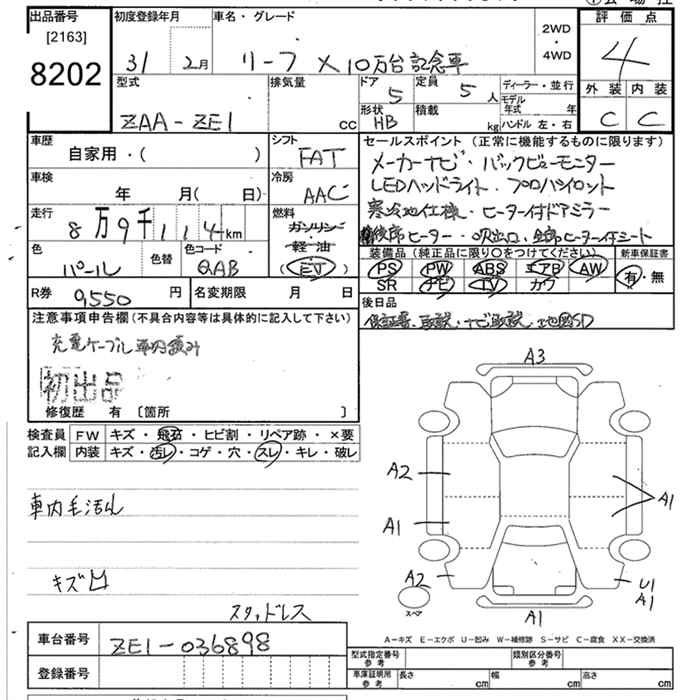 出品番号
[2163]
8202
初度登録年月
31 2月
車名・グレード
リーフ X 10万台記念車
2WD
・
4WD
評価点
4
外装 内装
C C
型式
ZAA-ZE1
排気量
cc
ドア
5
定員
5 人
形状
HB
積載
kg
ディーラー・並行
モデル年式 年
ハンドル 左・右
車歴
自家用・( )
シフト
FAT
車検
年 月( 日)
冷房
AAC
走行
8万9千114km
燃料
ガソリン
軽油
(EV)
色
パール
色替
色コード
QAB
R券
9,550 円
名変期限 月 日
セールスポイント(正常に機能するものに限ります)
メーカーナビ・バックビューモニター
LEDヘッドライト・プロパイロット
寒冷地仕様・ヒーター付ドアミラー
後席ヒーター・吹出口、全席ヒーター付シート
装備品(純正品に限り○をつけてください)
PS PW ABS エアB AW
SR ナビ TV カワ
新車保証書
有・無
後日品
保証書、取説、ナビ取説、地図SD
注意事項申告欄(不具合内容等は具体的に記入して下さい)
充電ケーブル車内積み
初出品
修復歴 有 〔箇所 〕
検査員記入欄
FW キズ・飛石・ヒビ割・リペア跡・×要
内装 キズ・汚レ・コゲ・穴・スレ・キレ・破レ
車内毛活ん
キズ凹
スタッドレス
A3
A2
A1
A1
A2
U1
A1
スペア
A1
A-キズ E-エクボ U-凹み W-補修跡 S-サビ C-腐食 XX-交換済
車台番号
ZE1-036898
登録番号
型式指定番号 参考
類別区分番号 参考
車庫証明用 参考
長さ cm
幅 cm
高さ cm